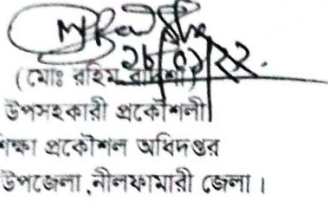 ২৮/০১/২২.
(মোঃ রহিম বাদশা)
উপসহকারী প্রকৌশলী
শিক্ষা প্রকৌশল অধিদপ্তর
উপজেলা,নীলফামারী জেলা।